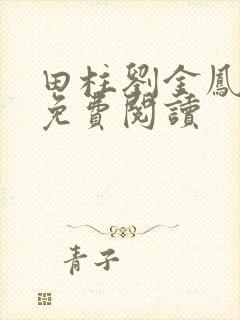 田柱劉金鳳
免費閱讀
青子